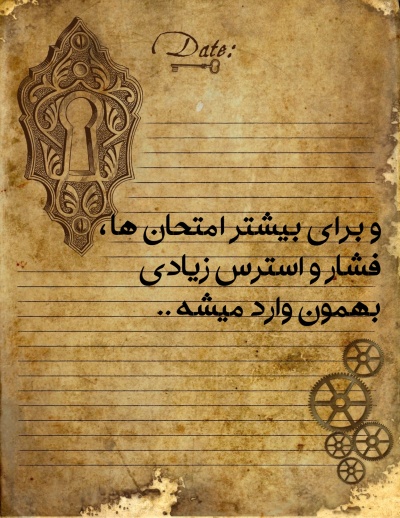 Date:
و برای بیشتر امتحان ها،
فشار و استرس زیادی
بهمون وارد میشه ..